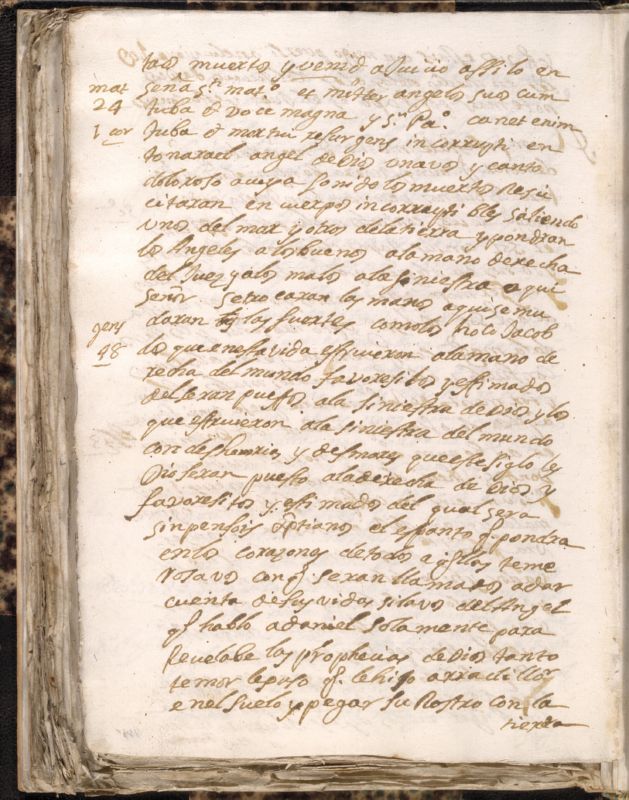 tad muertos y venid a Juicio assi lo en
mat seña St. mato. et mittet angelos suos cum
24 tuba & voce magna y St. Pao. canet enim
1 cor tuba & mortui resurgent incorrupti en
tonara el angel de Dios una voz y canto
doloroso a cuyo sonido los muertos Resu
citaran en cuerpos incorruptibles saliendo
unos del mar y otros de la tierra y pondran
los Angeles a los buenos a la mano derecha
del Juez y a los malos a la siniestra aqui
señor se trocaran las manos aqui se mu
gens daran las suertes como las troco Jacob
48 los que en esta vida estuvieron a la mano de
recha del mundo favoresidos y estimados
del seran puestos a la siniestra de Dios y los
que estuvieron a la siniestra del mundo
con desprecios y desmanes que este siglo les
Dio seran puestos a la derecha de Dios y
favoresidos y estimados del qual sera
si pensais xptianos el espanto q pondra
en los corazones de todos aquella teme
rosa vos con q seran llamados a dar
cuenta de sus vidas si la vos del Angel
q hablo a daniel solamente para
Revelarle las prophecias de Dios tanto
temor le puso q le hiso arrodillar
en el suelo y pegar su Rostro con la
tierra